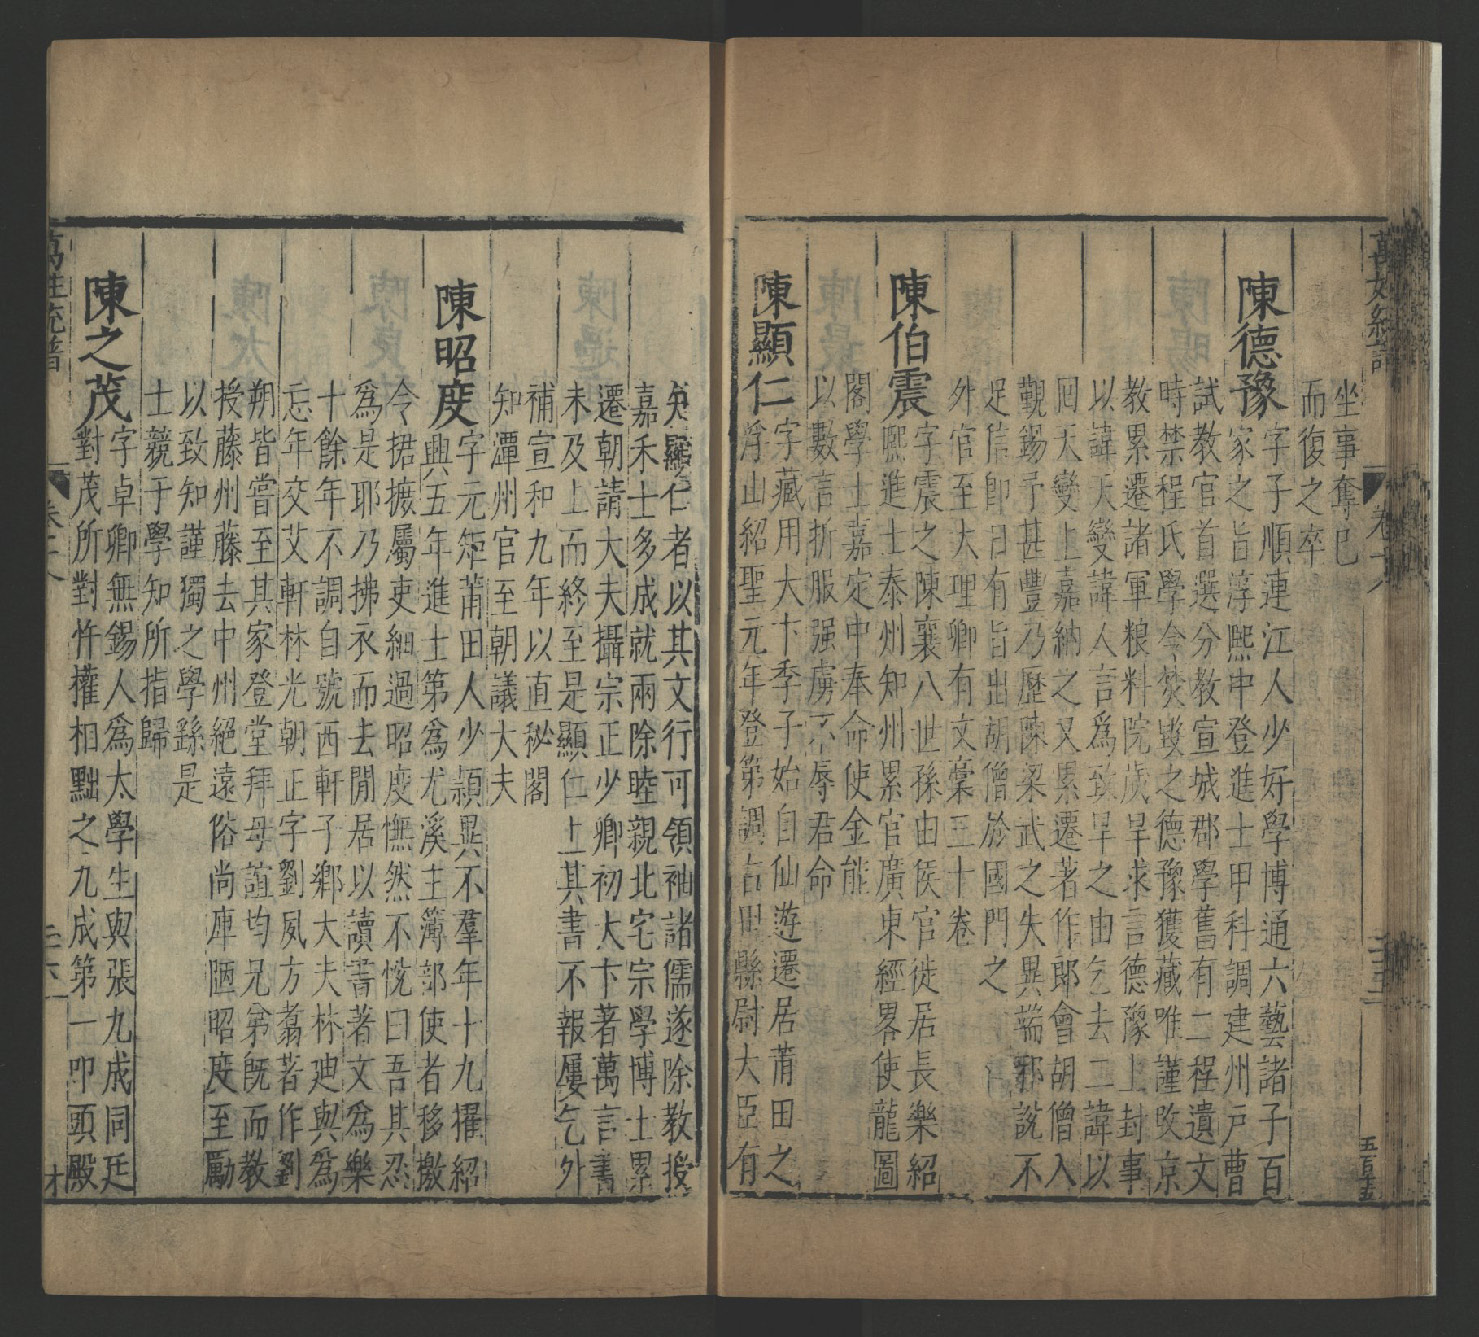 坐事奪已
而復之卒
陳德豫字子順連江人少好學博通六藝諸子百
家之旨淳熙中登進士甲科調建州戸曹
試教官首選分教宣城郡學舊有二程遺文
時禁程氏學令焚毀之德豫獲藏唯謹改京
教累遷諸軍粮料院歲旱求言德豫上封事
以諱天變諱人言爲致旱之由乞去二諱以
回天變上嘉納之又累遷著作郎會胡僧入
覲錫予甚豐乃歷陳梁武之失異端邪說不
足信即日有旨出胡僧於國門之
外官至大理卿有文槀五十卷
陳伯震字震之陳襄八世孫由侯官徙居長樂紹
熙進士泰州知州累官廣東經畧使龍圖
閣學士嘉定中奉命使金能
以數言折服强虜不辱君命
陳顯仁字藏用大卞季子始自仙遊遷居莆田之
浮山紹聖元年登第調古田縣尉大臣有
矣顯仁者以其文行可領袖諸儒遂除教授
嘉禾士多成就兩除睦親北宅宗學博士累
遷朝請大夫攝宗正少卿初大卞著萬言書
未及上而終至是顯仁上其書不報屢乞外
補宣和九年以直秘閣
知潭州官至朝議大夫
陳昭度字元矩莆田人少頴異不羣年十九擢紹
興五年進士第爲尤溪主簿部使者移檄
令捃摭屬吏細過昭度憮然不悅曰吾其忍
爲是耶乃拂衣而去閒居以讀書著文爲樂
十餘年不調自號西軒子鄉大夫林迪與爲
忘年交艾軒林光朝正字劉夙方翥著作劉
朔皆嘗至其家登堂拜母誼均兄弟旣而教
授藤州藤去中州絕遠俗尚庳陋昭度至勵
以致知謹獨之學繇是
士競于學知所指歸
陳之茂字卓卿無錫人爲太學生與張九成同廷
對茂所對忤權相黜之九成第一叩頭殿